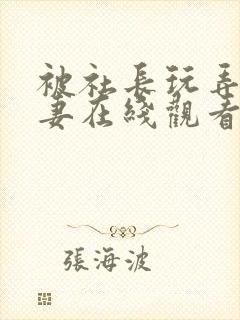 被社長玩弄
妻在綫觀看
張海波